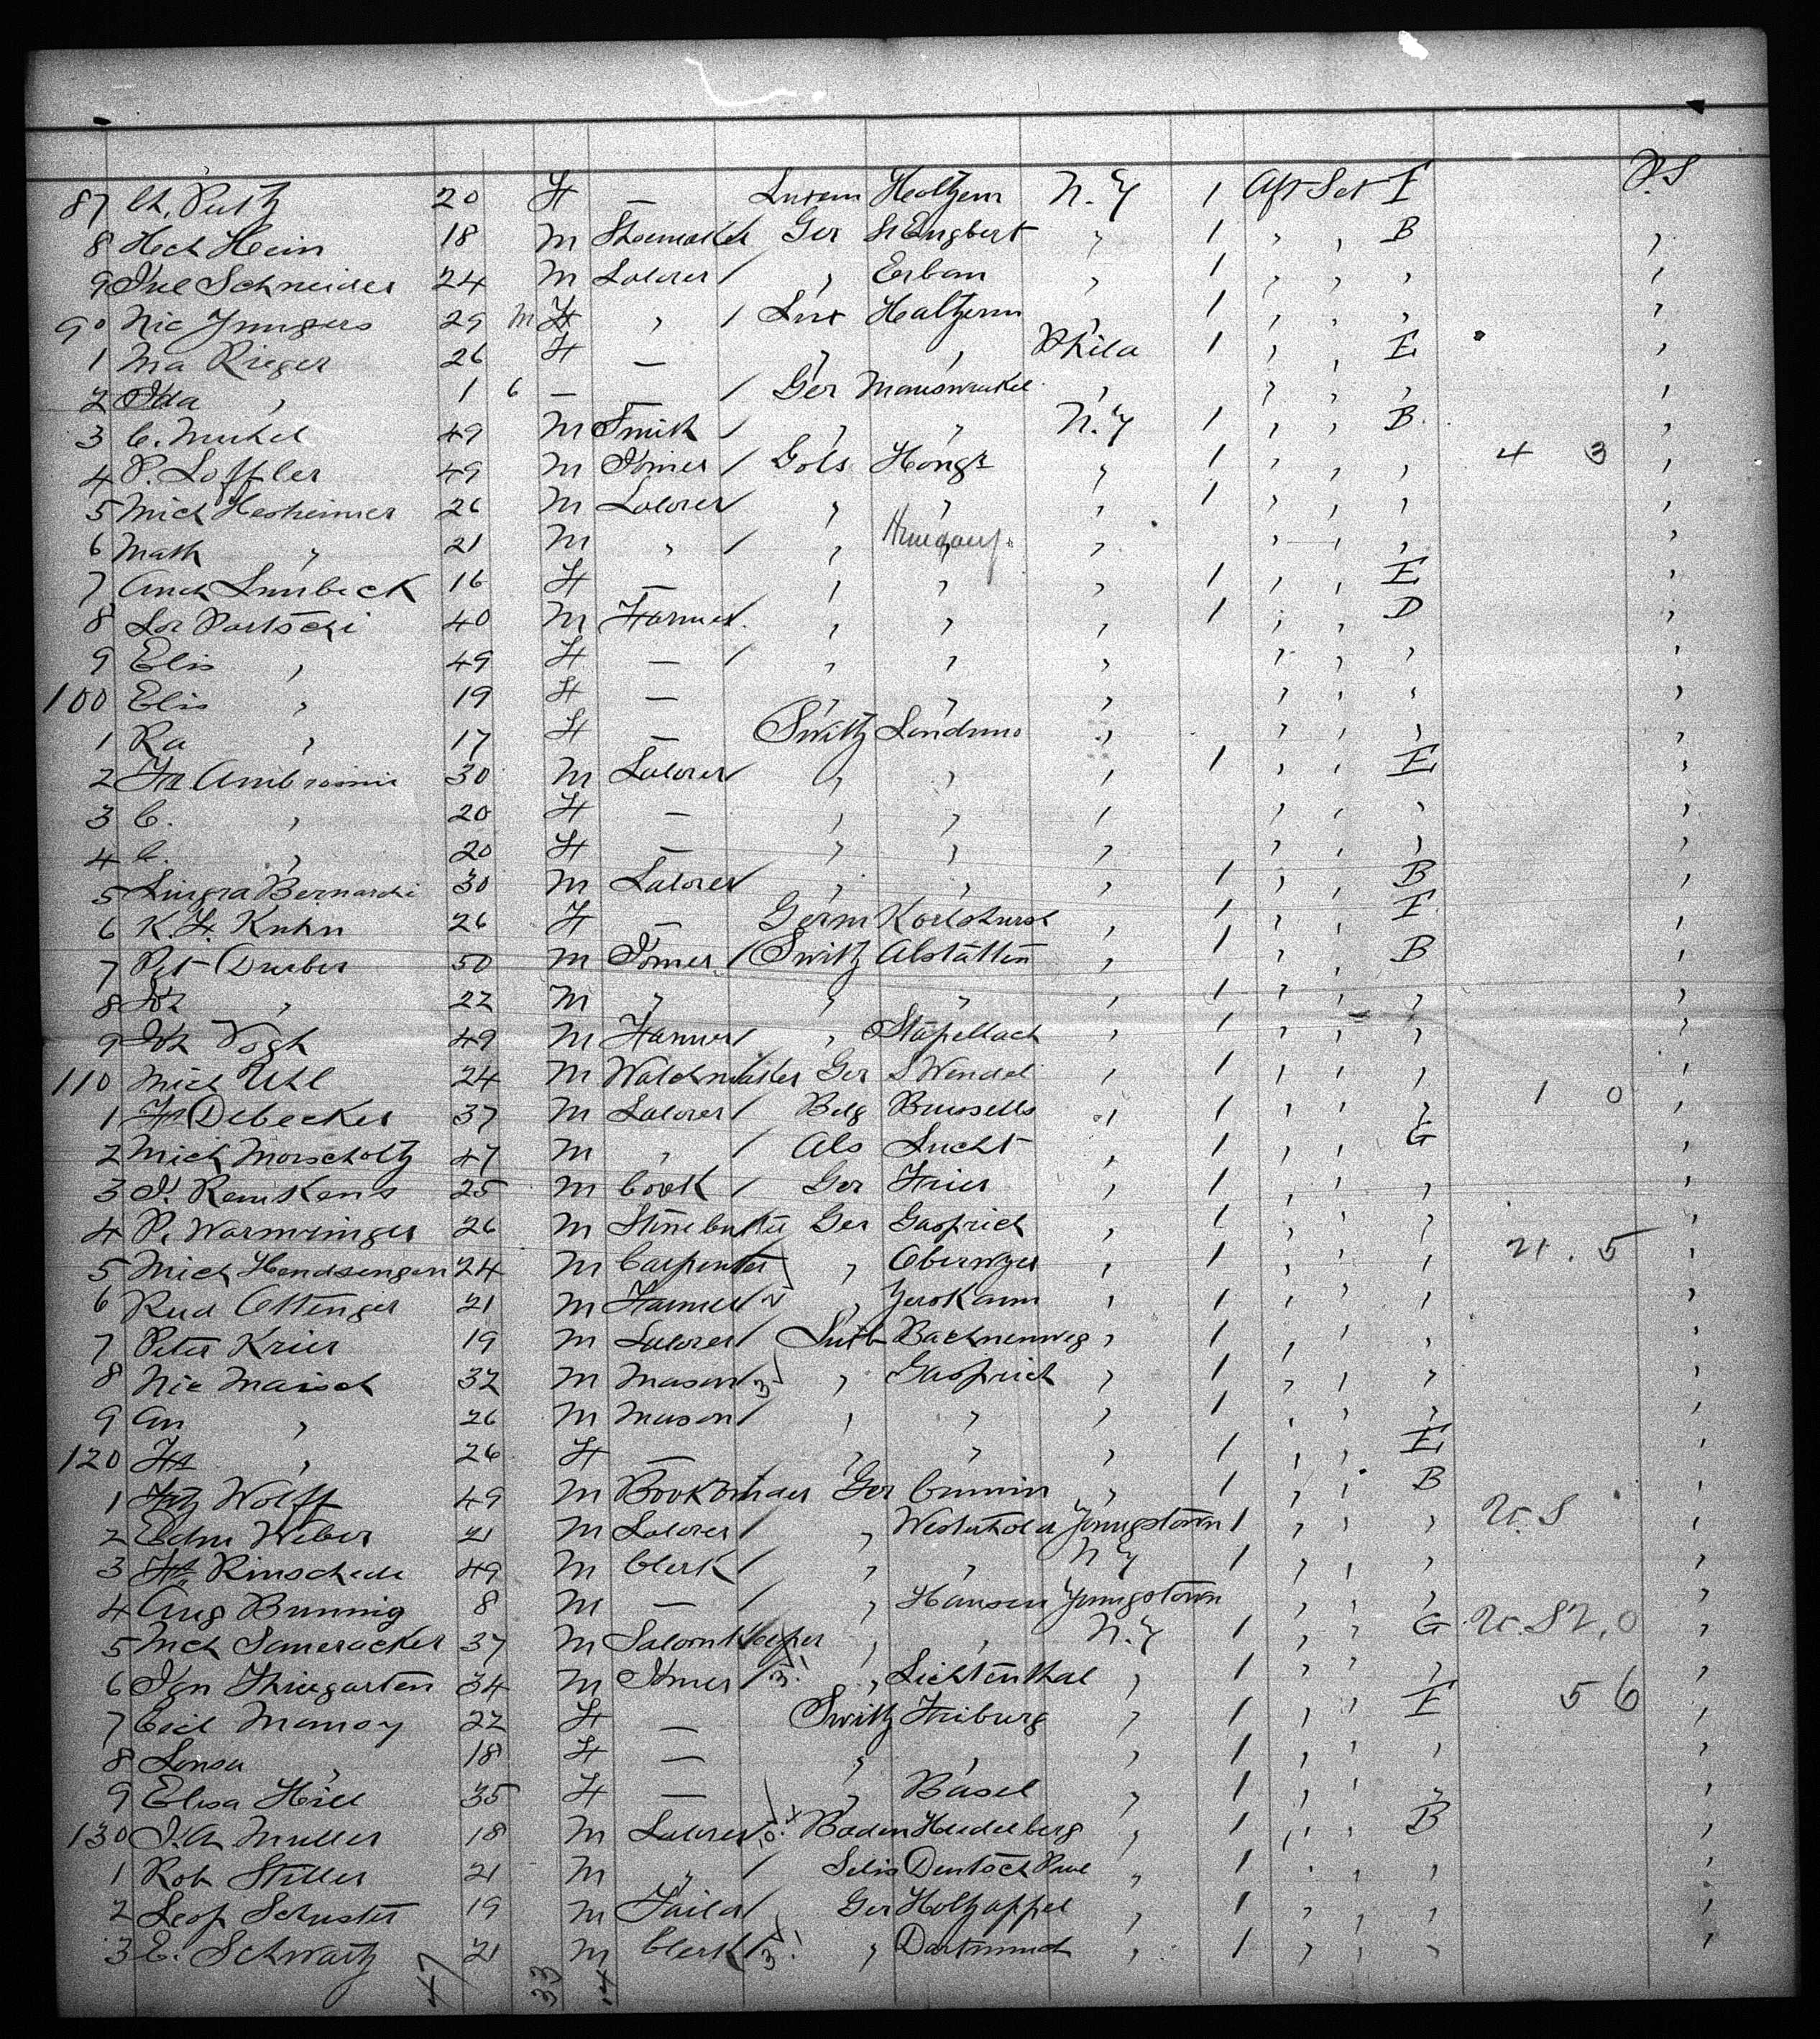 P.S
87 Ch. Putz 20 F — Luxem Healtzem N.Y 1 Aft Sct E
8 Hch Hein 18 M Shoemaker Ger St Engbert " 1 " " B "
9 Jul Schneider 24 M Laborer / " Erban " 1 " " " "
90 Nic Jungers 29 M F " / Lux Healtzem " 1 " " " "
1 Ma Rieger 26 F — " " Phila 1 " " E "
2 Ida " 1 6 — — / Ger " " " " "
3 C. Muhel 49 M Smith / " " N.Y 1 " " B "
4 P. Loffler 49 M Joiner / Gols Hongr " 1 " " " 4 3 "
5 Mich Hesheimer 26 M Laborer / " " " 1 " " " "
6 Math " 21 M " / " Hungary " " " " "
7 And Limbeck 16 F — " " " 1 " " E "
8 Lor Partschi 40 M Farmer " " " 1 " " D "
9 Elis " 49 F — / " " " " " " "
100 Elis " 19 F — " " " " " "
1 Ra " 17 F — Switz " " " " " "
2 Fr Ambrosini 30 M Laborer / " " " 1 " " E "
3 C. " 20 F — " " " " " " "
4 C. " 20 F — " " " " " " "
5 Bernardi 30 M Laborer / " " " 1 " " B "
6 K. F. Kuhn 26 F — Germ Karlshurst " 1 " " E "
7 Pet Durber 50 M Joiner / Switz Alstätten " 1 " " B "
8 " 22 M " " " " 1 " " " "
9 Vogh 49 M Farmer / " Stapellach " 1 " " " "
110 Mich Uhl 24 M Watchmaker Ger S Wendel " 1 " " " "
1 Fr Debecker 37 M Laborer / Belg Brussells " 1 " " " 1 0 "
2 Mich Morscholtz 47 M " / Als Lucht " 1 " " G "
3 J. Remskens 25 M Cook / Ger Trier " 1 " " " "
4 P. Warmringer 26 M Stonecutter Ger Gasprich " 1 " " " "
5 Mich Hendsengen 24 M Carpenter / " " 1 " " " 21. 5 "
6 Rud Ottenger 21 M Farmer / 2 " " 1 " " " "
7 Peter Krier 19 M Laborer / " 1 " " " "
8 Nic Maisch 32 M Mason / 3 " Gasprich " 1 " " " "
9 An " 26 M Mason / " " " 1 " " " "
120 Fr " 26 F — " " " 1 " " E "
1 Fritz Wolff 49 M Bookbinder Ger " 1 " " B "
2 Edm Weber 21 M Laborer / " Youngstown 1 " " " U.S "
3 Fr Rinschede 49 M Clerk / " " N.Y 1 " " " "
4 Aug Bunnig 8 M — / " Hausen Youngstown " " " "
5 Mch Saueracker 37 M Saloonkeeper " " N.Y 1 " " G U.S 2.0 "
6 Ign Thiegarten 34 M Joiner / 3! " Lichtenthal " 1 " " " "
7 Ceil Manoy 22 F — Switz Friburg " 1 " " E 5 6 "
8 Lonsa " 18 F — " " " 1 " " " "
9 Elisa Hill 35 F — / " Basel " 1 " " " "
130 J. A Muller 18 M Laborer Baden Heidelberg " 1 " " B "
1 Rob Stiller 21 M " / Deutsch " 1 " " " "
2 Leop Schuster 19 M Tailor / Ger Holtzappel " 1 " " " "
3 E. Schwartz 21 M Clerk / 3! " Dortmund " 1 " " " "
47 33 14